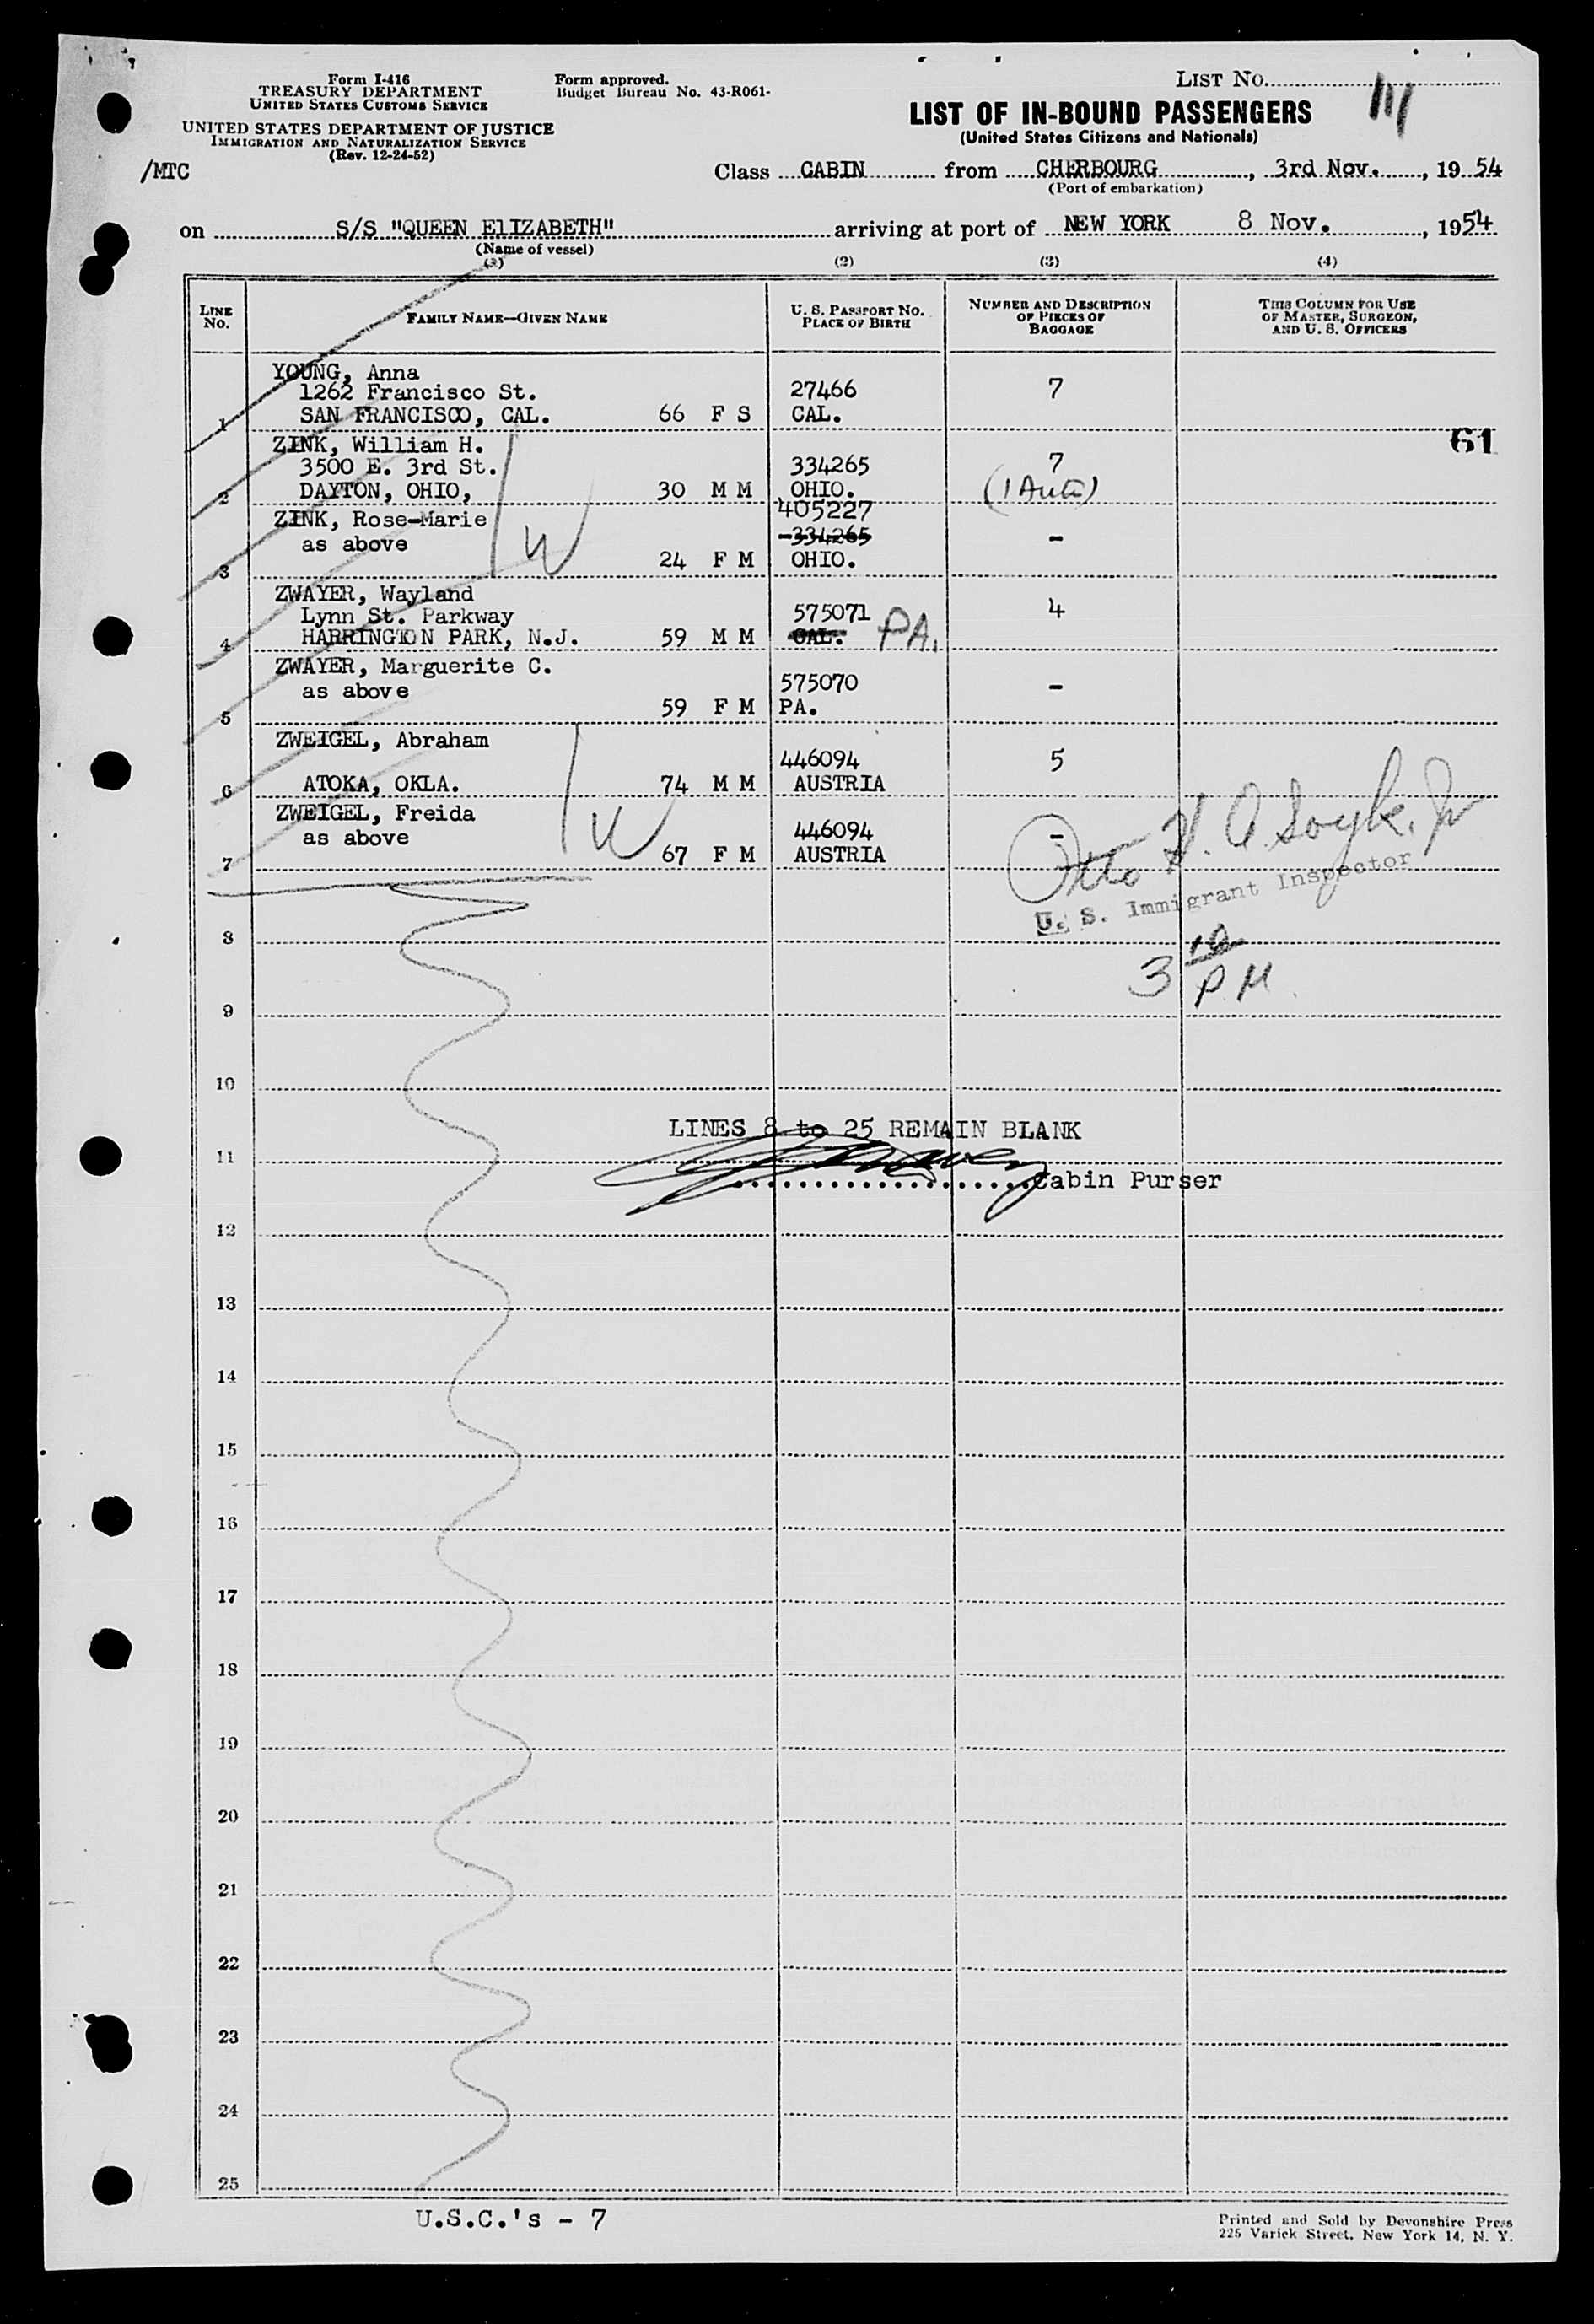 Form I-416
TREASURY DEPARTMENT
UNITED STATES CUSTOMS SERVICE
UNITED STATES DEPARTMENT OF JUSTICE
IMMIGRATION AND NATURALIZATION SERVICE
(Rev. 12-24-52)
/MTC
Form approved.
Budget Bureau No. 43-R061-
LIST NO. 111
LIST OF IN-BOUND PASSENGERS
(United States Citizens and Nationals)
Class CABIN from CHERBOURG, 3rd Nov., 19 54
(Port of embarkation)
on S/S "QUEEN ElIZABETH" arriving at port of NEW YORK 8 Nov., 1954
(Name of vessel)
(1) (2) (3) (4)
LINE NO.
FAMILY NAME—GIVEN NAME
U. S. PASSPORT NO.
PLACE OF BIRTH
NUMBER AND DESCRIPTION
OF PIECES OF
BAGGAGE
THIS COLUMN FOR USE
OF MASTER, SURGEON,
AND U. S. OFFICERS
YOUNG, Anna
1262 Francisco St. 27466 7
1 SAN FRANCISCO, CAL. 66 F S CAL.
61
ZINK, William H.
3500 E. 3rd St. 334265 7
2 DAYTON, OHIO, 30 M M OHIO. (1 Auto)
405227
ZINK, Rose-Marie
as above 334265 -
3 24 F M OHIO.
ZWAYER, Wayland
Lynn St. Parkway 575071 4
4 HARRINGTON PARK, N.J. 59 M M CAL. PA.
ZWAYER, Marguerite C.
as above 575070 -
5 59 F M PA.
ZWEIGEL, Abraham
446094 5
6 ATOKA, OKLA. 74 M M AUSTRIA
ZWEIGEL, Freida
as above 446094 -
7 67 F M AUSTRIA
W
W
Otto H. A. Soyk, Jr
U. S. Immigrant Inspector
3 10 PM
8
9
10
LINES 8 to 25 REMAIN BLANK
11
Cabin Purser
12
13
14
15
16
17
18
19
20
21
22
23
24
25
U.S.C.'s - 7
Printed and Sold by Devonshire Press
225 Varick Street, New York 14, N. Y.